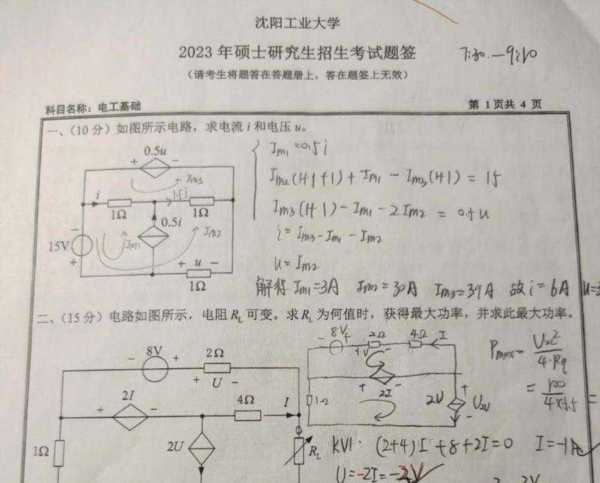 沈阳工业大学
2023 年硕士研究生招生考试题签
7:30.—9:10
（请考生将题答在答题册上，答在题签上无效）
科目名称：电工基础
第 1 页共 4 页
一、（10 分）如图所示电路，求电流 i 和电压 u。
0.5u
+ −
Im3
i
1Ω
1Ω
0.5i
Im1
Im2
15V
−
+
+ u −
1Ω
Im1=0.5i
Im2(1+1+1)+Im1−Im3(1+1)=15
Im3(1+1)−Im1−2Im2=0.5u
i=Im3−Im1−Im2
u=Im2
解得 Im1=3A Im2=30A Im3=39A 故 i=6A
二、（15 分）电路如图所示，电阻 RL 可变。求 RL 为何值时，获得最大功率，并求此最大功率。
− 8V +
2Ω
+ U −
2I
+ −
4Ω
I
1Ω
2U
RL
8V
2Ω
4Ω
I
2I
1Ω
2U
KVL: (2+4)I+8+2I=0 I=−1A
U=−2I=−2V